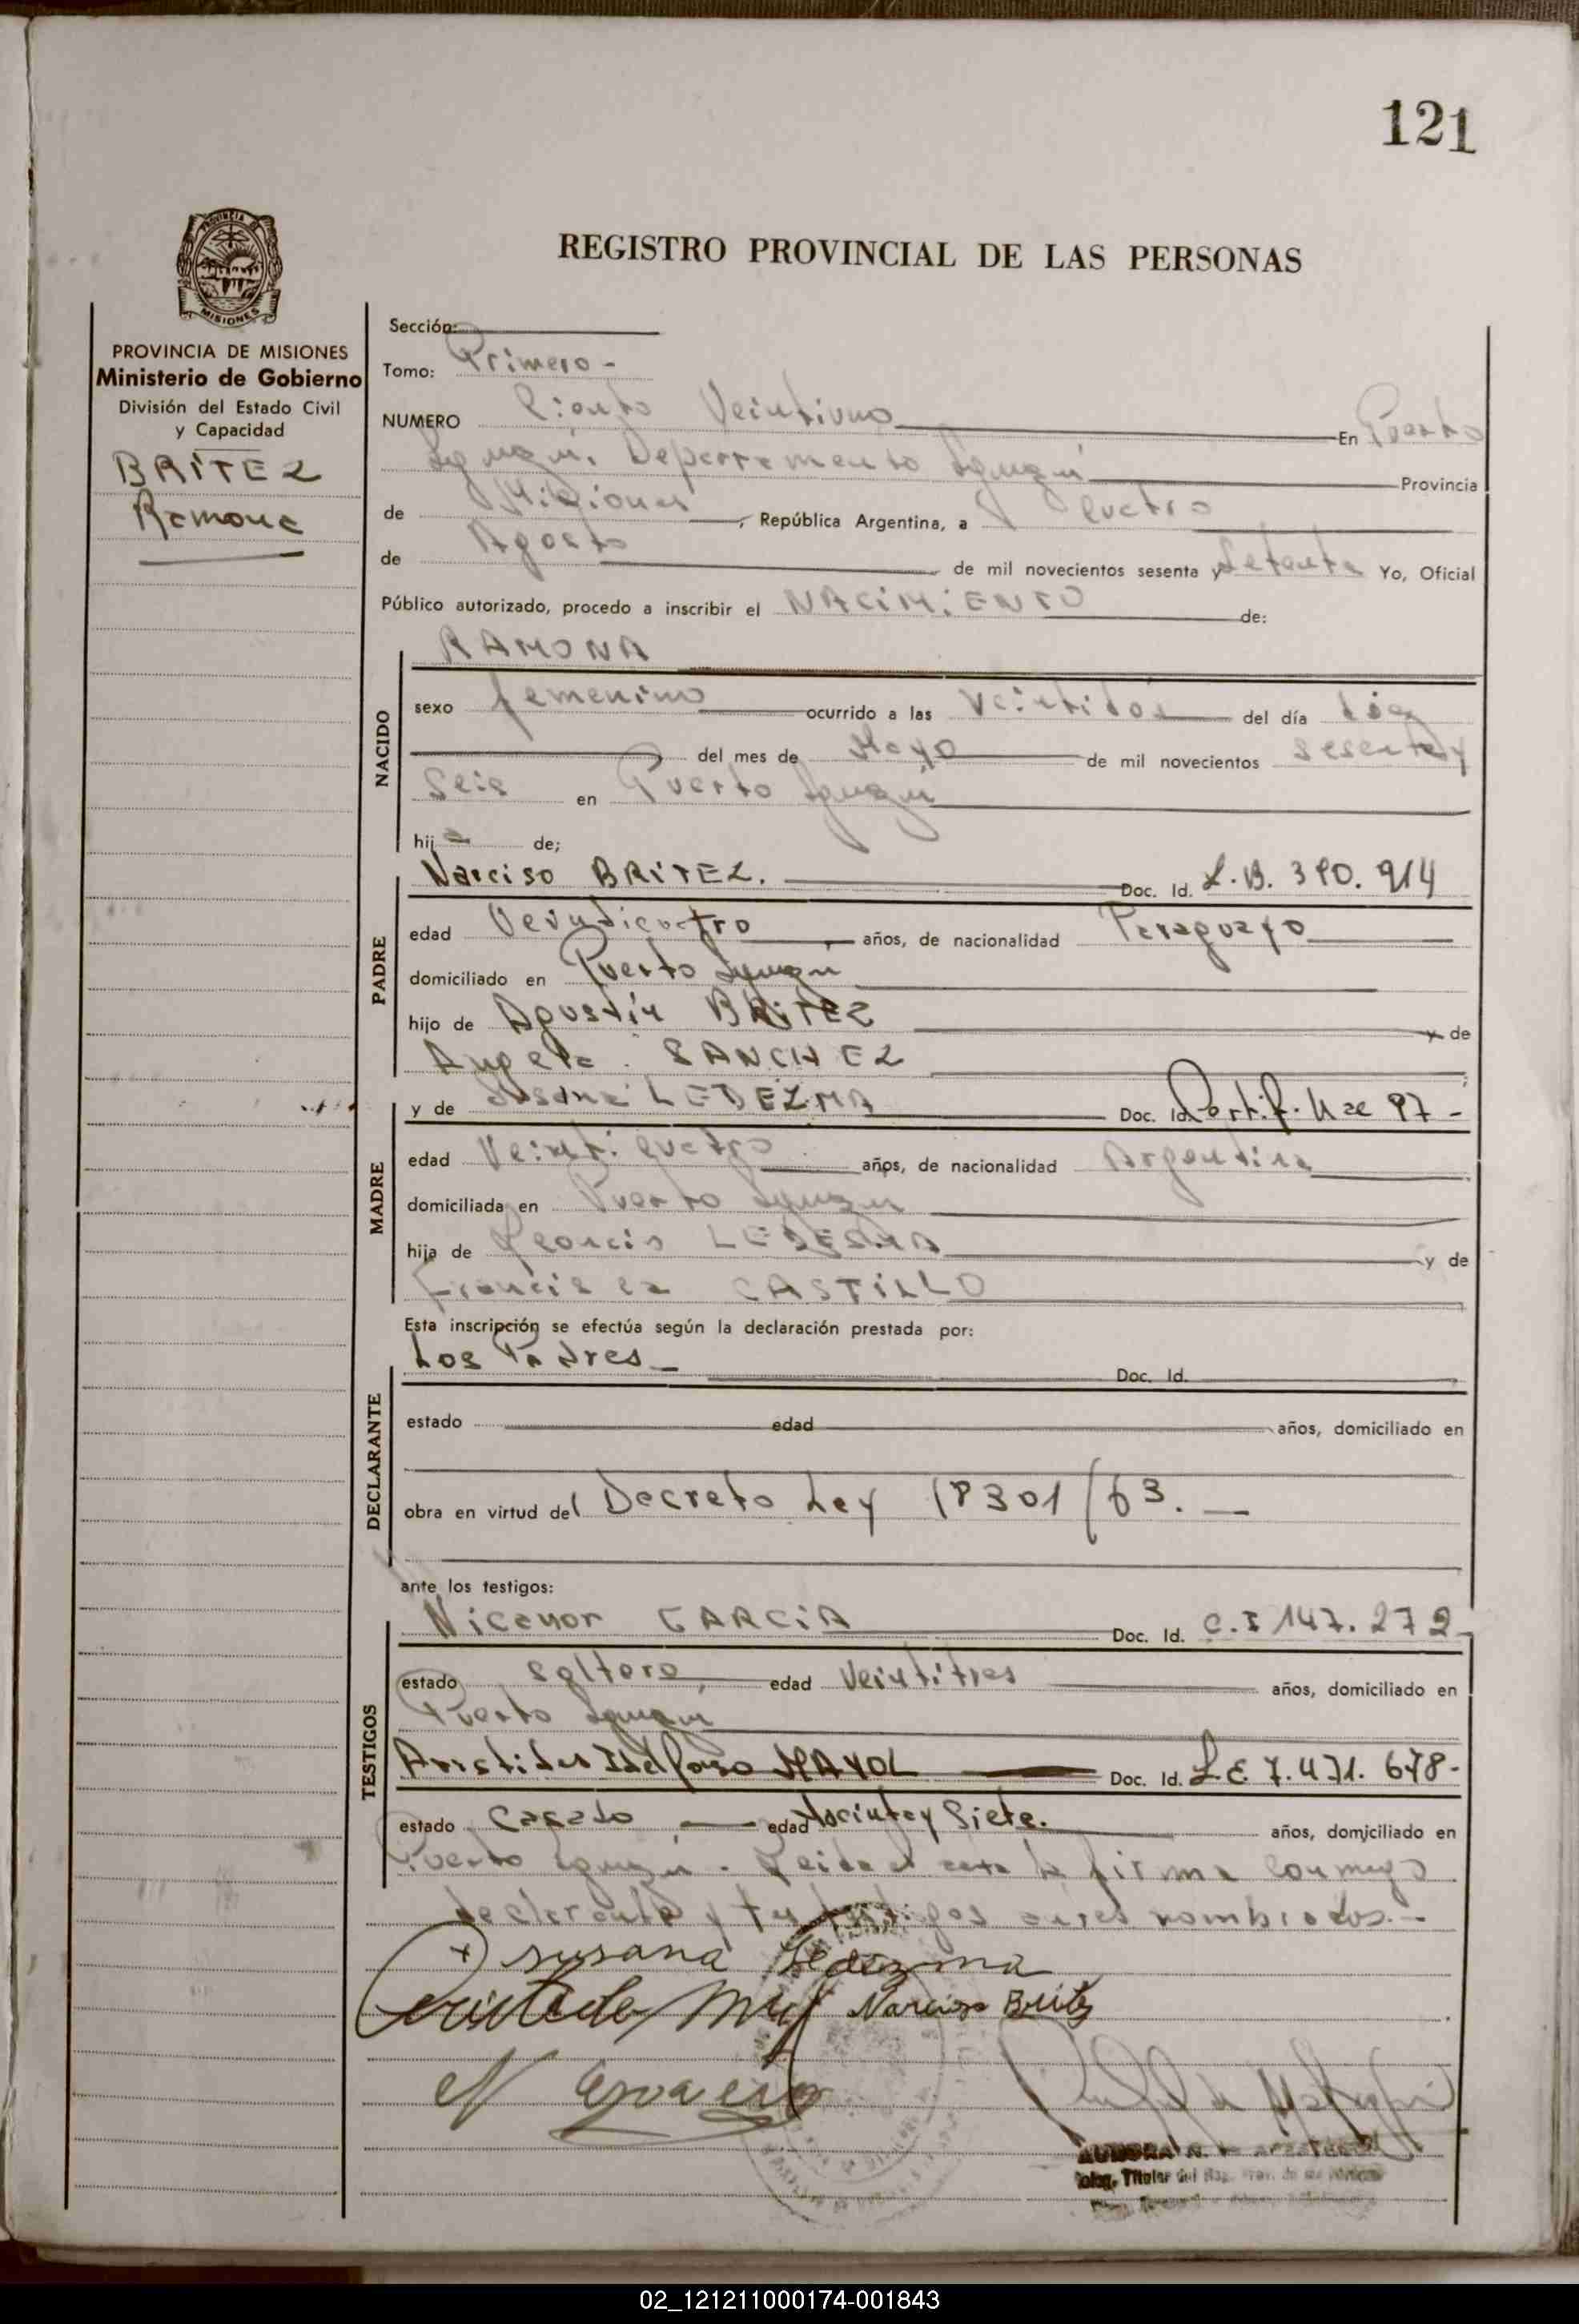 121
REGISTRO PROVINCIAL DE LAS PERSONAS
PROVINCIA DE MISIONES
Ministerio de Gobierno
División del Estado Civil
y Capacidad
BRÍTEZ
Ramona
Sección:
Tomo: Primero -
NUMERO Ciento Veintiuno En Puerto
Iguazú. Departamento Iguazú Provincia
de Misiones, República Argentina, a Cuatro
de Agosto de mil novecientos sesenta y Setenta Yo, Oficial
Público autorizado, procedo a inscribir el NACIMIENTO de:
RAMONA
NACIDO
sexo femenino ocurrido a las veintidos del día
del mes de Mayo de mil novecientos sesenta y
Seis en Puerto Iguazú
hija de;
PADRE
Narciso BRITEZ. Doc. Id. L.B. 390.914
edad Veinticuatro años, de nacionalidad Paraguayo
domiciliado en Puerto Iguazú
hijo de Agustín BRITEZ y de
Angela SANCHEZ
MADRE
y de Susana LEDEZMA Doc. Id. Certif. Nac 97 -
edad Veinti cuatro años, de nacionalidad Argentina
domiciliada en Puerto Iguazú
hija de LEDESMA y de
Francisca CASTILLO
Esta inscripción se efectúa según la declaración prestada por:
DECLARANTE
Los Padres - Doc. Id.
estado edad años, domiciliado en
obra en virtud del Decreto Ley 18301/63. -
ante los testigos:
TESTIGOS
Nicanor GARCIA Doc. Id. C.I 147.272
estado soltero, edad Veintitres años, domiciliado en
Puerto Iguazú
Aristides Idelfonso MAYOL Doc. Id. L.E 7.471.678-
estado casado, edad y Siete. años, domiciliado en
Puerto Iguazú. Leida el acta la firma conmigo
declarante y testigos antes nombrados.-
Susana Ledezma
Narciso Britez
AURORA N.
Titular del
02_121211000174-001843